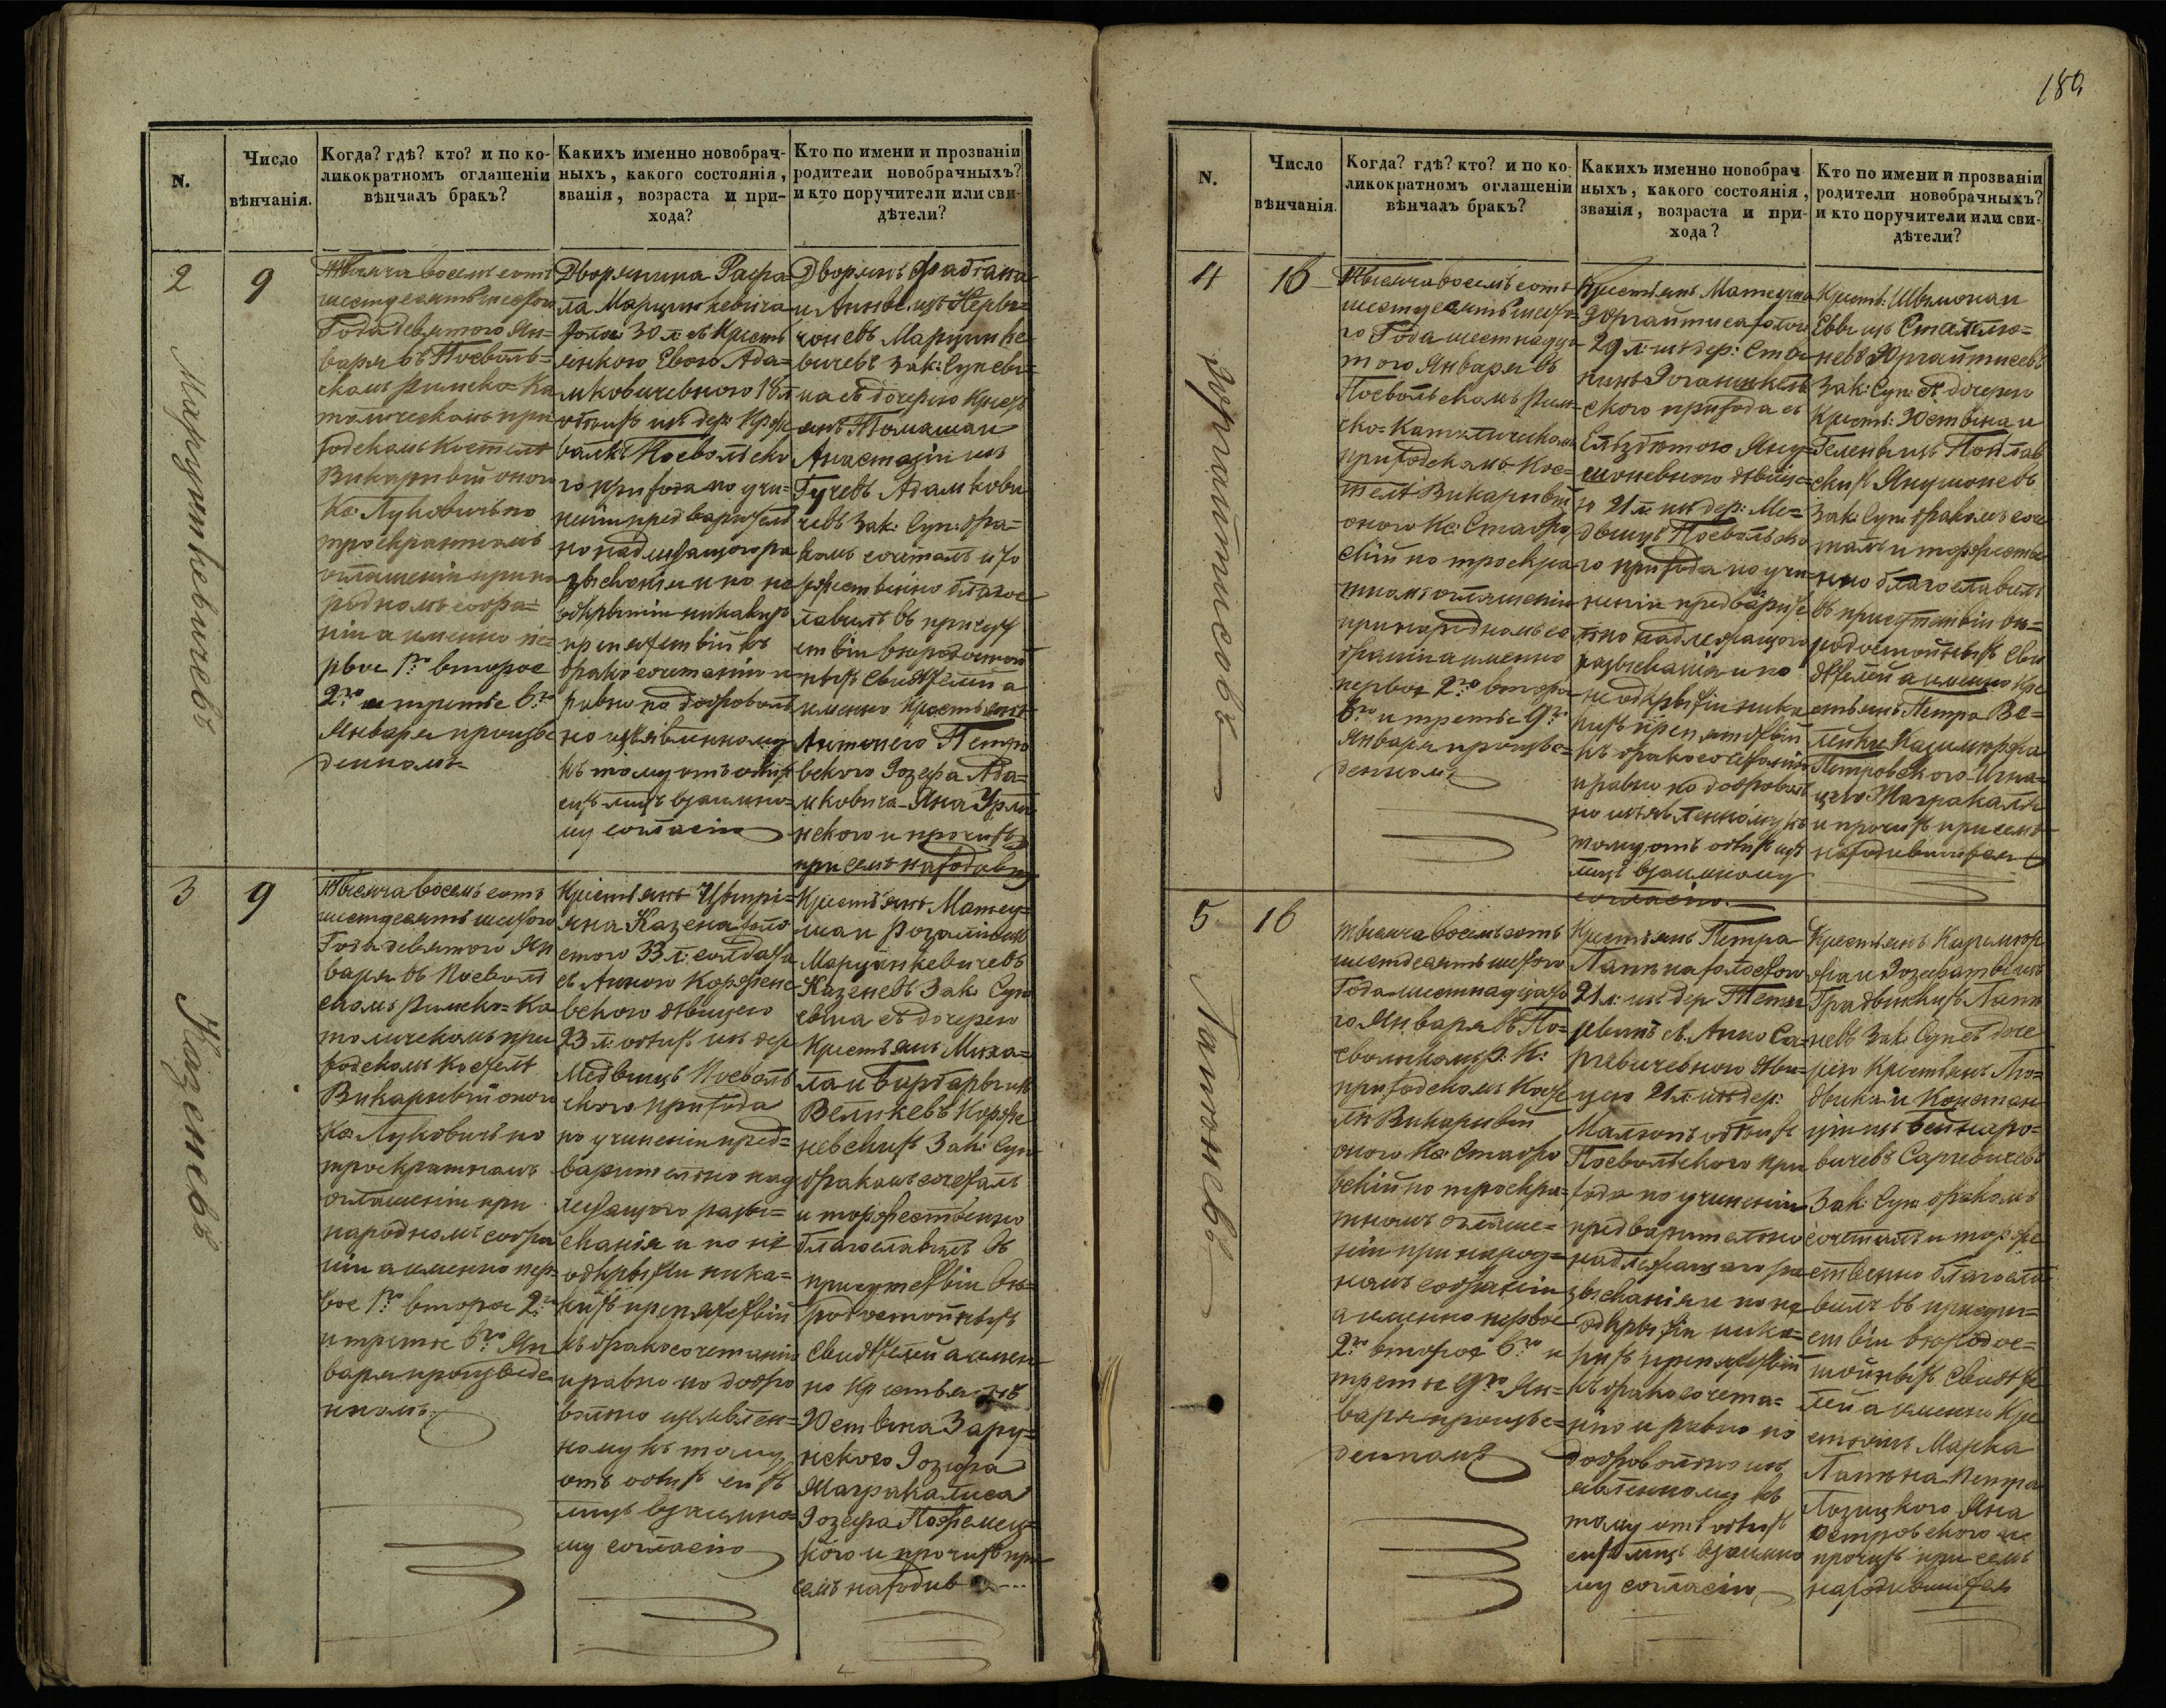 180
N.
Число
вѣнчанія.
Когда? гдѣ? кто? и по ко-
ликократномъ оглашеніи
вѣнчалъ бракъ?
Какихъ именно новобрач-
ныхъ, какого состоянія,
званія, возраста и при-
хода?
Кто по имени и прозванію
родители новобрачныхъ?
и кто поручители или сви-
дѣтели?
2
9
Марцинкевичевъ
Тысяча восемь сотъ
шестдесятъ шестого
Года девятого Ян=
варя въ Посволь=
скомъ Римско=Ка
толическомъ при
ходскомъ Костелѣ
Викарный оного
Кс: Луковичъ по
троекратномъ
оглашеніи при на
родномъ собра=
ніи а именно пе=
рвое 1го второе
2го и третье 6го
Января произве
денномъ
Дворянина Рафа=
ла Марцинкевича
30 л: съ Крестъ
янкою Евою Ада=
мковичевною 18 л
обоихъ изъ дер:
Посвольско
го прихода по учи=
неніи предварительн
но надлежащого ра
зысканія и по не
открытіи никакихъ
препятствій къ
бракосочетанію и
равно по доброволь
но изъявленному
къ тому отъ обоихъ
сихъ лицъ взаимно=
му согласію
Дворянъ Фабіана
и Анны изъ
Марцинке
вичевъ Зак: Супевы=
на съ дочерью Крест
янъ Томаша и
Анастазіи изъ
Адамкови
чевъ Зак: Суп: бра=
комъ сочеталъ и то
ржественно благос
лавилъ въ присут
ствіи вѣродостой
ныхъ Свидѣтелей а
именно Крестьянъ
Антонего Петро
вского Іозефа Ада=
мковича Яна
нского и прочихъ
при семъ находив
3
9
Казеневъ
Тысяча восемь сотъ
шестдесятъ шестого
Года девятого Ян
варя въ Посволь
скомъ Римско=Ка
толическомъ при
ходскомъ Костелѣ
Викарный оного
Кс: Луковичъ по
троекратномъ
оглашеніи при
народномъ собра
ніи а именно пер=
вое 1го второе 2го
и третье 6го Ян
варя произведе
нномъ.
Крестьянъ Цыпрі=
яна Казена холо
стого 33 л: солдата
съ Анною Корже
вского дѣвицею
23 л: обоихъ изъ дер
Медвицъ Посволь
ского прихода
по учиненіи пред=
варительно над
лежащого разы=
сканія и по не
открытіи ника=
кихъ препятствій
къ бракосочетанію
и равно по добро
вольно изъявлен=
ному къ тому
отъ обоихъ сихъ
лицъ взаимно=
му согласію
Крестьянъ Матеу=
ша и Розаліи изъ
Марцинкевичевъ
Казеневъ Зак: Суп
съ дочерью
Крестьянъ Миха=
ла и Барбары изъ
Великевъ
Зак: Суп
бракомъ сочеталъ
и торжественно
благославилъ въ
присутствіи вѣ=
родостойныхъ
Свидѣтелей а имен
но Крестьянъ
Юстына Зару=
нского Іозефа
Маграмалиса
Іозефа
кого и прочихъ при
семъ находив
N.
Число
вѣнчанія.
Когда? гдѣ? кто? и по ко-
ликократномъ оглашеніи
вѣнчалъ бракъ?
Какихъ именно новобрач-
ныхъ, какого состоянія,
званія, возраста и при-
хода?
Кто по имени и прозванію
родители новобрачныхъ?
и кто поручители или сви-
дѣтели?
4
16
Юргайтисовъ
Тысяча восемь сотъ
шестдесятъ шесто=
го Года шестнадца
того Января въ
Посвольскомъ Рим=
ско=Католическомъ
приходскомъ Кос=
телѣ Викарный
оного Кс: Ставро
скій по троекра
тномъ оглашеніи
при народномъ со
браніи а именно
первое 2го второе
6го и третье 9го
Января произве=
денномъ
Крестьянъ Матеуша
Юргайтиса холост
29 л: изъ дер:
ского прихода съ
Елзбѣтою Яну=
шоневного дѣвице=
ю 21 л: изъ дер: Ме=
двицъ Посвольско
го прихода по учи=
неніи предварите
льно надлежащого
разысканія и по
не открытіи ника
кихъ препятствій
къ бракосочетанію
и равно по доброволь
но изъявленному къ
тому отъ обоихъ сихъ
лицъ взаимному
согласію.
Крест: Шымона и
Еввы изъ
Юргайтисевъ
Зак: Суп: съ дочерью
Крест: Юстына и
Гелены изъ
Янушоневъ
Зак: Суп: бракомъ соче
талъ и торжестве
нно благославилъ
въ присутствіи вѣ=
родостойныхъ Сви
дѣтелей а именно Кре
стьянъ Петра Ве=
лейки Казимержа
Петровского Игна=
цего Маграмалиса
и прочихъ при семъ
находившихся
5
16
Лапеневъ
Тысяча восемь сотъ
шестдесятъ шестого
Года шестнадцато
го Января въ По=
свольскомъ Р: К:
приходскомъ Косте
лѣ Викарный
оного Кс: Ставро
вскій по троекра=
тномъ оглаше=
ніи при народ=
номъ собраніи
а именно первое
2го второе 6го и
третье 9го Ян=
варя произве=
денномъ
Крестьянъ Петра
Лапена холостого
21 л: изъ дер
съ Анною Са=
ревичевного дѣви=
цею 21 л: изъ дер:
обоихъ
Посвольского при
хода по учиненіи
предварительно
надлежащаго ра
зысканія и по не
открытіи ника=
кихъ препятствій
къ бракосочета=
нію и равно по
добровольно изъ
явленному къ
тому отъ обоихъ
сихъ лицъ взаимно
му согласію
Крестьянъ Казимер
жа и Юзефаты изъ
Лапе
невъ Зак: Суп съ доче
рью Крестьянъ Лю=
двика и Констан
ціи изъ Бейнаро=
вичевъ Саревичевъ
Зак: Суп: бракомъ
сочеталъ и торже
ственно благосла
вилъ въ присут=
ствіи вѣродос=
тойныхъ Свидѣте
лей а именно Кре
стьянъ Марка
Лапена Петра
Лозицкого Яна
Петровского и
прочихъ при семъ
находившихся